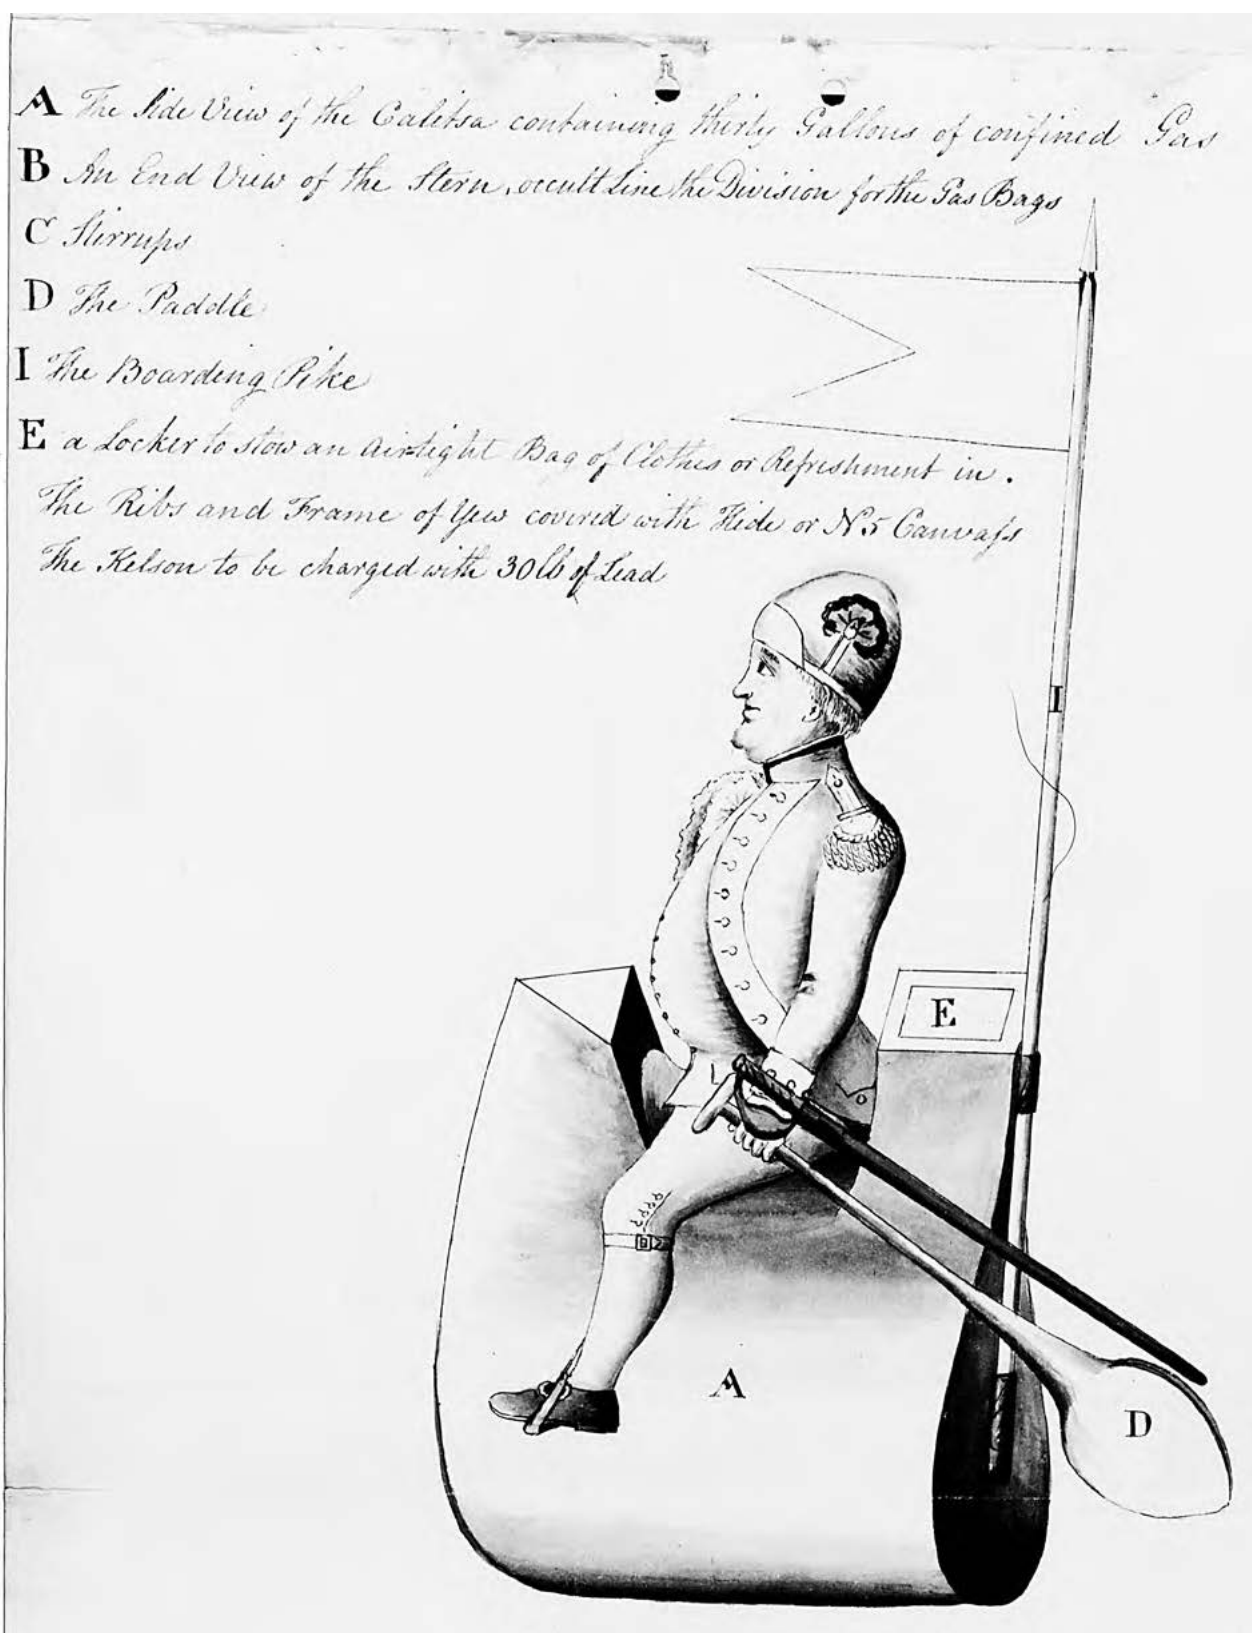 A The Side View of the Calitsa containing thirty Gallons of confined Gas
B An End View of the Stern, occult Line the Division for the Gas Bags
C Stirrups
D The Paddle
I The Boarding Pike
E a Locker to stow an Airtight Bag of Clothes or Refreshment in.
The Ribs and Frame of Yew covered with Hide or No 5 Canvaſs
The Kelson to be charged with 30 lb of Lead
I
E
A
D